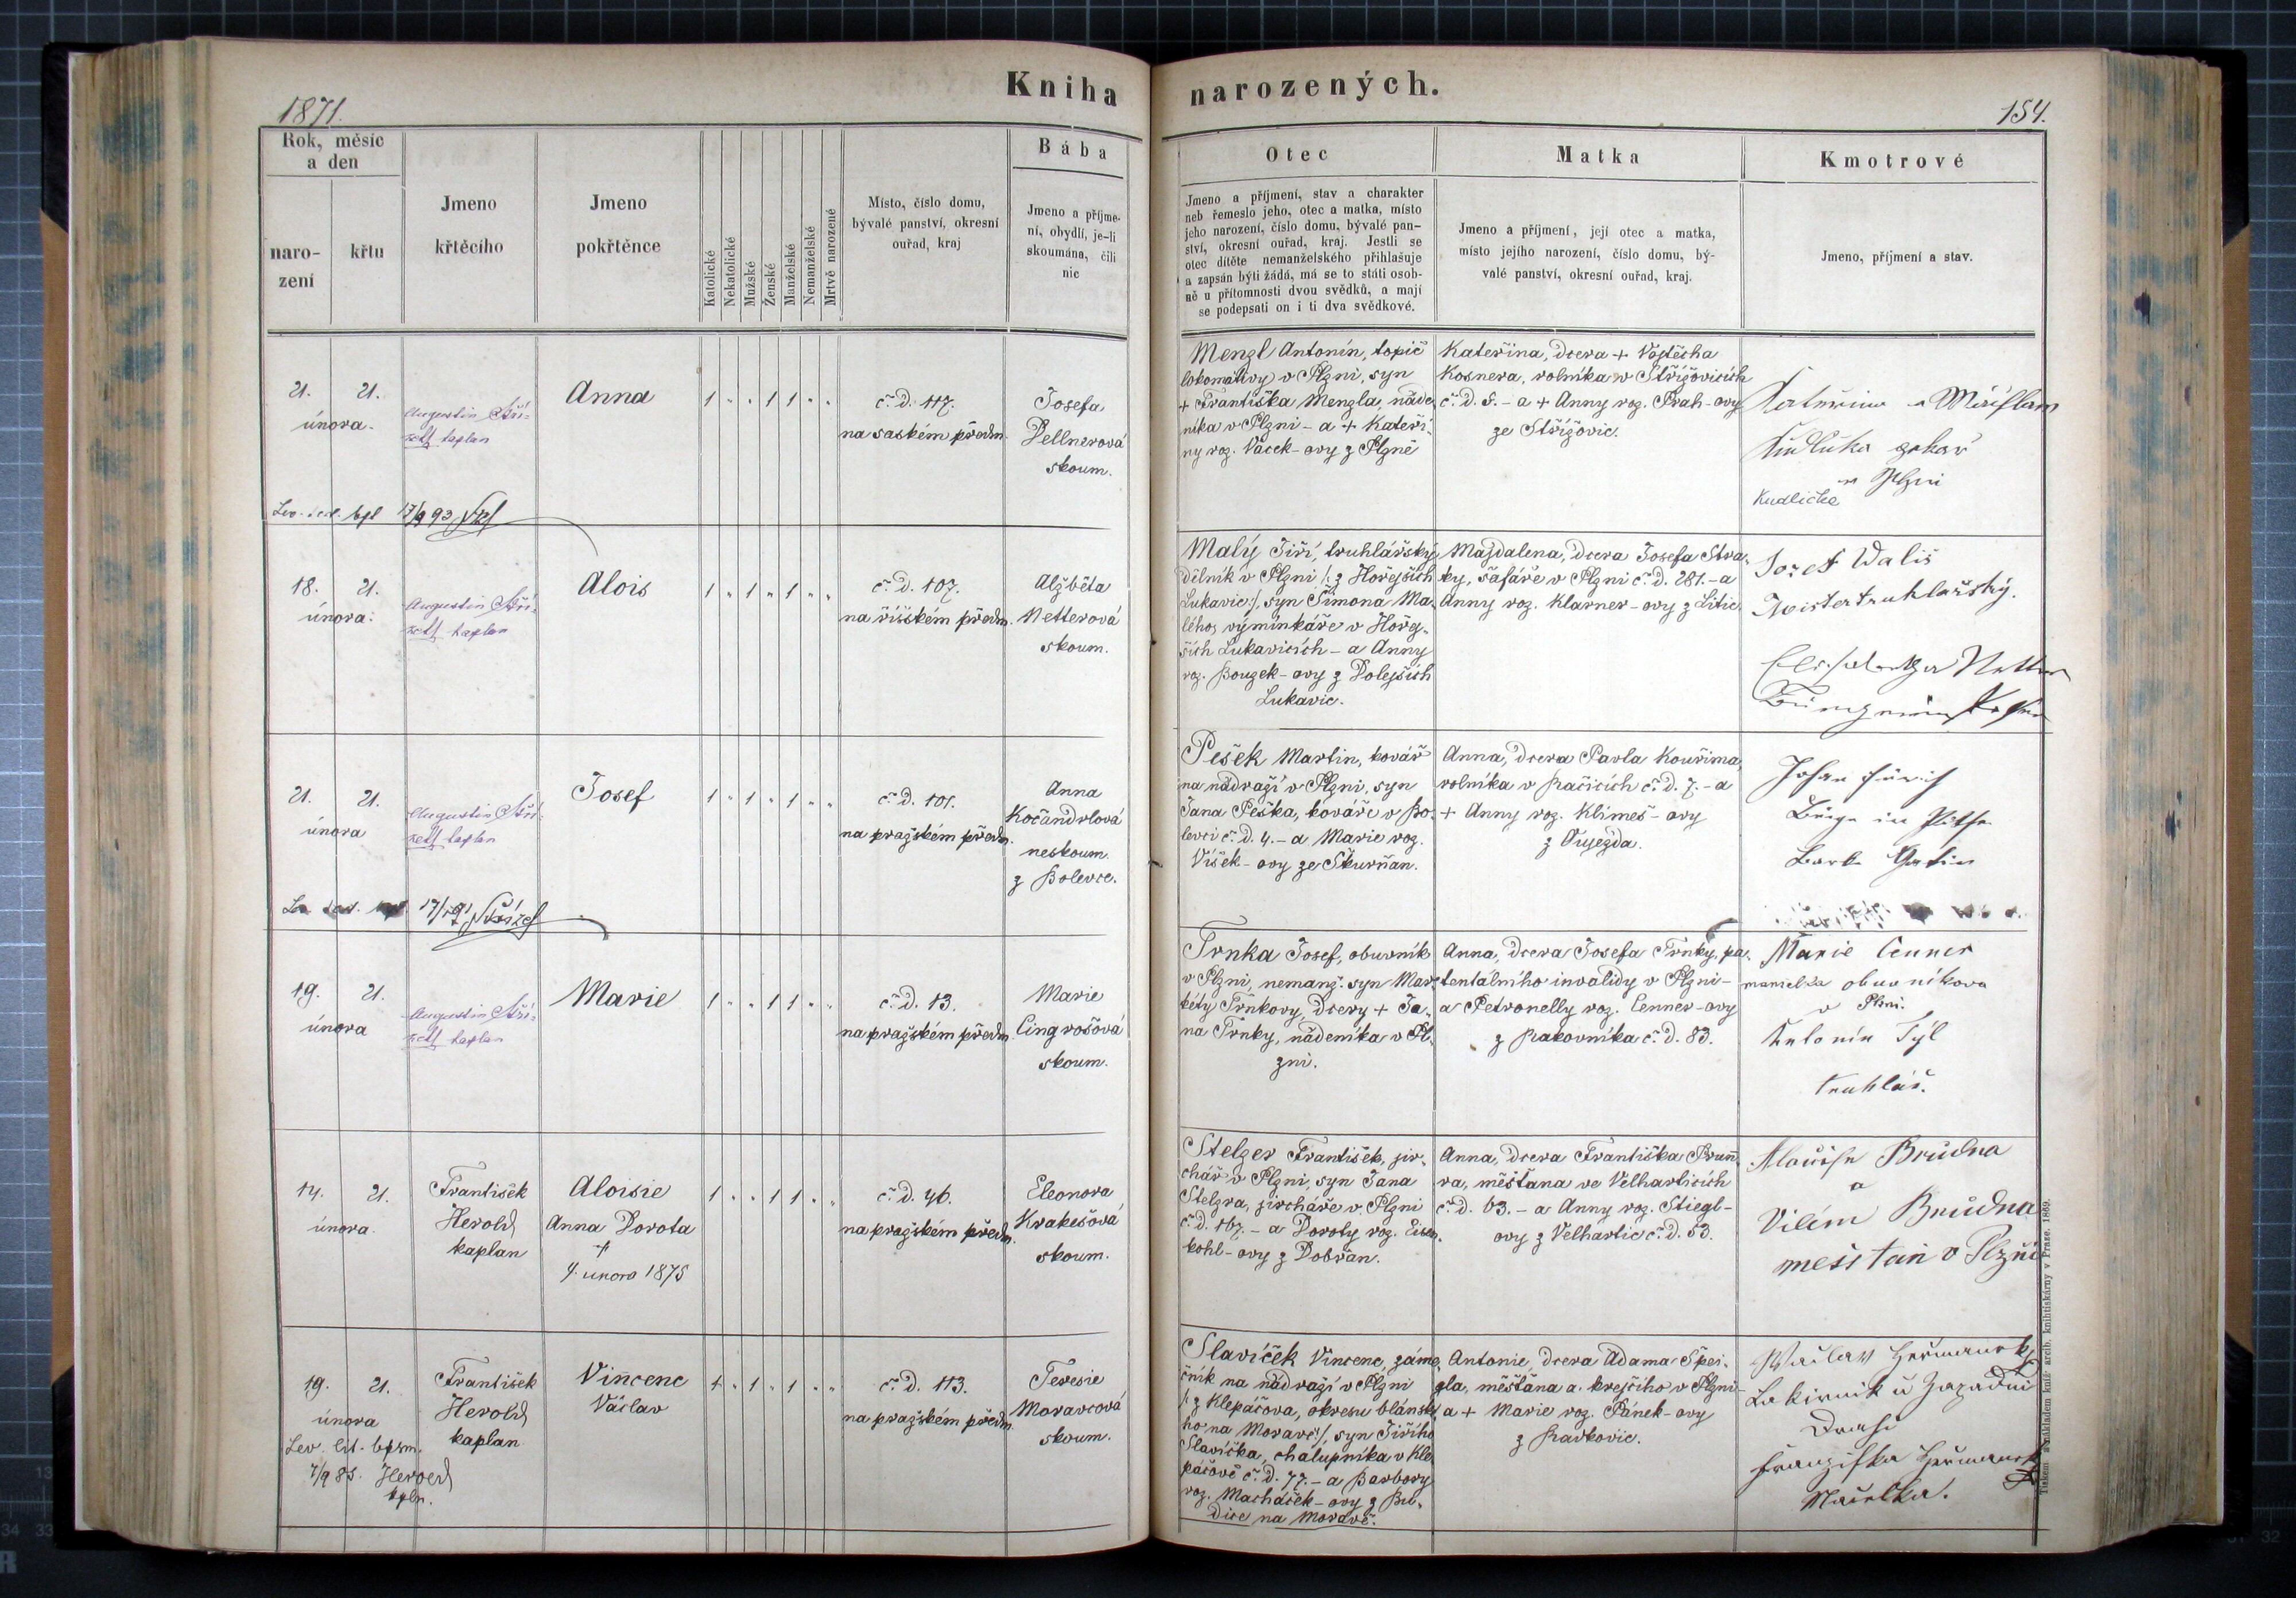 Kniha narozených.
1871.
154.
Rok, měsíc
a den
naro-
zení
křtu
Jmeno
křtěcího
Jmeno
pokřtěnce
Katolické
Nekatolické
Mužské
Ženské
Manželské
Nemanželské
Mrtvě narozené
Místo, číslo domu,
bývalé panství, okresní
ouřad, kraj
Bába
Jmeno a příjme-
ní, obydlí, je-li
skoumána, čili
nic
Otec
Jmeno a příjmení, stav a charakter
neb řemeslo jeho, otec a matka, místo
jeho narození, číslo domu, bývalé pan-
ství, okresní ouřad, kraj. Jestli se
otec dítěte nemanželského přihlašuje
a zapsán býti žádá, má se to státi osob-
ně u přítomnosti dvou svědků, a mají
se podepsati on i ti dva svědkové.
Matka
Jmeno a příjmení, její otec a matka,
místo jejího narození, číslo domu, bý-
valé panství, okresní ouřad, kraj.
Kmotrové
Jmeno, příjmení a stav.
21. 21.
února.
Augustin
kaplan
17/9 93
Anna
1 " " 1 1 " "
č. d. 117.
na saském předm.
Josefa
Pellnerová
skoum.
Menzl Antonín, topič
lokomotivy v Plzni, syn
+ Františka Menzla, náde-
níka v Plzni - a + Kateři-
ny roz. Vacek-ovy z Plzně
Kateřina, dcera + Vojtěcha
Kosnera, rolníka v Střížovicích
č. d. 8. - a + Anny roz. Prah-ovy
ze Střížovic.
v Plzni
Kudlička
18. 21.
února.
Augustin
kaplan
Alois
1 " 1 " 1 " "
č. d. 107.
na říšském předm.
Alžběta
Netterová
skoum.
Malý Jiří, truhlářský
dělník v Plzni /: z Hořejších
Lukavic :/, syn Šimona Ma-
lého, výmínkáře v Hořej-
ších Lukavicích - a Anny
roz. Bouzek-ovy z Dolejších
Lukavic.
Magdalena, dcera Josefa Stra-
ky, šafáře v Plzni č. d. 281. - a
Anny roz. Klarner-ovy z Litic.
Josef Wališ
Mistr truhlařský.
21. 21.
února
Augustin
kaplan
Josef
1 " 1 " 1 " "
č. d. 101.
na pražském předm.
Anna
Kočandrlová
neskoum.
z Bolevce.
Pešek Martin, kovář
na nádraží v Plzni, syn
Jana Peška, kováře v Bo-
levci č. d. 4. - a Marie roz.
Víšek-ovy ze Škurňan.
Anna, dcera Pavla Kouřima,
rolníka v Račicích č. d. 7. - a
+ Anny roz. Klimeš-ovy
z Oujezda.
19. 21.
února
Augustin
kaplan
Marie
1 " " 1 1 " "
č. d. 13.
na pražském předm.
Marie
Cingrošová
skoum.
Trnka Josef, obuvník
v Plzni, nemanž. syn Mar-
kéty Trnkovy, dcery + Ja-
na Trnky, nádeníka v Pl-
zni.
Anna, dcera Josefa Trnky, pa-
tentálního invalidy v Plzni -
a Petronelly roz. Cenner-ovy
z Rakovníka č. d. 83.
Marie Cenner
manželka obuvníkova
v Plzni.
Antonín Tyl
truhlář.
14. 21.
února.
František
Herold
kaplan
Aloisie
Anna Dorota
+
4. února 1875
1 " " 1 1 " "
č. d. 46.
na pražském předm.
Eleonora
Krakešová
skoum.
Stelzer František, jir-
chář v Plzni, syn Jana
Stelzra, jircháře v Plzni
č. d. 167. - a Doroty roz. Eisen-
kohl-ovy z Dobřan.
Anna, dcera Františka Brun-
ra, měšťana ve Velharticích
č. d. 63. - a Anny roz. Stiegl-
ovy z Velhartic č. d. 53.
a
Vilém Brudna
mešťan v Plzni
19. 21.
února
František
Herold
kaplan
7/9 85. Herold
kpln.
Vincenc
Václav
1 " 1 " 1 " "
č. d. 113.
na pražském předm.
Teresie
Moravcová
skoum.
Slavíček Vincenc, záme-
čník na nádraží v Plzni
/: z Klepáčova, okresu blánské-
ho na Moravě :/, syn Jiřího
Slavíčka, chalupníka v Kle-
páčově č. d. 77. - a Barbory
roz. Macháček-ovy z Bu-
dice na Moravě.
Antonie, dcera Adama Špei-
gla, měšťana a krejčího v Plzni -
a + Marie roz. Pánek-ovy
z Radkovic.
Tiskem a nákladem kníž. arcib. knihtiskárny v Praze. 1869.